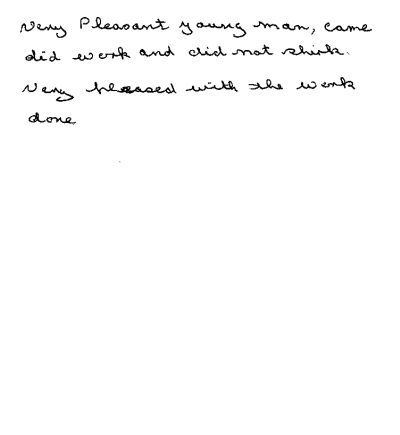 Very Pleasant young man, came
did work and did not shirk.
Very pleased with the work
done